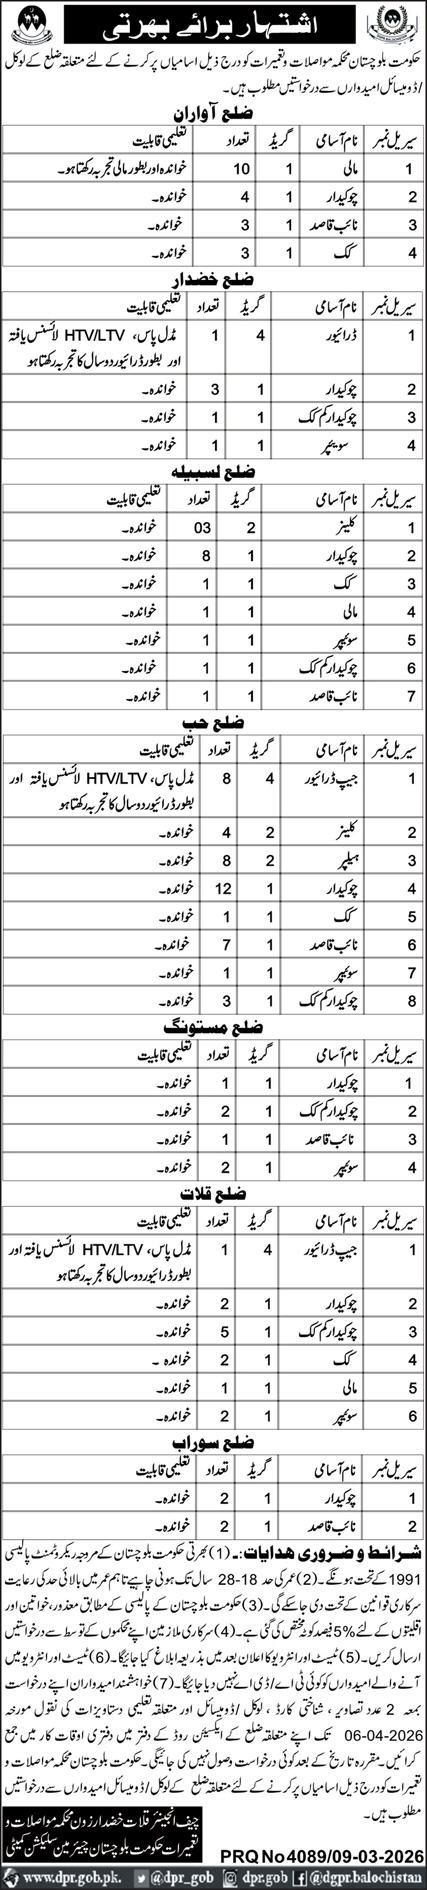 اشتہار برائے بھرتی
حکومت بلوچستان محکمہ مواصلات و تعمیرات کو درج ذیل اسامیاں پر کرنے کے لئے متعلقہ ضلع کے لوکل
/ڈومیسائل امیدواروں سے درخواستیں مطلوب ہیں۔
ضلع آواران
سیریل نمبر نام آسامی گریڈ تعداد تعلیمی قابلیت
1 مالی 1 10 خواندہ اور بطور مالی تجربہ رکھتا ہو۔
2 چوکیدار 1 4 خواندہ۔
3 نائب قاصد 1 3 خواندہ۔
4 کک 1 3 خواندہ۔
ضلع خضدار
سیریل نمبر نام آسامی گریڈ تعداد تعلیمی قابلیت
1 ڈرائیور 4 1 مڈل پاس، HTV/LTV لائسنس یافتہ
اور بطور ڈرائیور دو سال کا تجربہ رکھتا ہو
2 چوکیدار 1 3 خواندہ۔
3 چوکیدار کم کک 1 1 خواندہ۔
4 سویپر 1 1 خواندہ۔
ضلع لسبیلہ
سیریل نمبر نام آسامی گریڈ تعداد تعلیمی قابلیت
1 کلینر 2 03 خواندہ۔
2 چوکیدار 1 8 خواندہ۔
3 کک 1 1 خواندہ۔
4 مالی 1 1 خواندہ۔
5 سوئیپر 1 1 خواندہ۔
6 چوکیدار کم کک 1 1 خواندہ۔
7 نائب قاصد 1 1 خواندہ۔
ضلع حب
سیریل نمبر نام آسامی گریڈ تعداد تعلیمی قابلیت
1 جیپ ڈرائیور 4 8 مڈل پاس، HTV/LTV لائسنس یافتہ اور
بطور ڈرائیور دو سال کا تجربہ رکھتا ہو
2 کلینر 2 4 خواندہ۔
3 ہیلپر 2 8 خواندہ۔
4 چوکیدار 1 12 خواندہ۔
5 کک 1 1 خواندہ۔
6 نائب قاصد 1 7 خواندہ۔
7 سوئیپر 1 1 خواندہ۔
8 چوکیدار کم کک 1 3 خواندہ۔
ضلع مستونگ
سیریل نمبر نام آسامی گریڈ تعداد تعلیمی قابلیت
1 چوکیدار 1 1 خواندہ۔
2 چوکیدار کم کک 1 2 خواندہ۔
3 نائب قاصد 1 1 خواندہ۔
4 سوئیپر 1 2 خواندہ۔
ضلع قلات
سیریل نمبر نام آسامی گریڈ تعداد تعلیمی قابلیت
1 جیپ ڈرائیور 4 1 مڈل پاس، HTV/LTV لائسنس یافتہ اور
بطور ڈرائیور دو سال کا تجربہ رکھتا ہو
2 چوکیدار 1 2 خواندہ۔
3 چوکیدار کم کک 1 5 خواندہ۔
4 کک 1 2 خواندہ۔
5 مالی 1 1 خواندہ۔
6 سوئیپر 1 2 خواندہ۔
ضلع سوراب
سیریل نمبر نام آسامی گریڈ تعداد تعلیمی قابلیت
1 چوکیدار 1 2 خواندہ۔
2 نائب قاصد 1 2 خواندہ۔
شرائط و ضروری ھدایات:۔ (1) بھرتی حکومت بلوچستان کے مروجہ ریکروٹمنٹ پالیسی
1991 کے تحت ہونگے۔ (2) عمر کی حد 18-28 سال تک ہونی چاہیے تاہم عمر میں بالائی حد کی رعایت
سرکاری قوانین کے تحت دی جا سکے گی۔ (3) حکومت بلوچستان کے پالیسی کے مطابق معذور، خواتین اور
اقلیتوں کے لئے 5% فیصد کوٹہ مختص کی گئی ہے۔ (4) سرکاری ملازمین اپنے محکموں کے توسط سے درخواستیں
ارسال کریں۔ (5) ٹیسٹ اور انٹرویو کا اعلان بعد میں بذریعہ ابلاغ کیا جائیگا۔ (6) ٹیسٹ اور انٹرویو میں
آنے والے امیدواروں کو کوئی ٹی اے/ڈی اے نہیں دیا جائیگا۔ (7) خواہشمند امیدواران اپنے درخواست
بمعہ 2 عدد تصاویر، شناختی کارڈ، لوکل/ڈومیسائل اور متعلقہ تعلیمی دستاویزات کی نقول مورخہ
06-04-2026 تک اپنے متعلقہ ضلع کے ایکسیئن روڈ کے دفتر میں دفتری اوقات کار میں جمع
کرائیں۔ مقررہ تاریخ کے بعد کوئی درخواست وصول نہیں کی جائیگی۔ حکومت بلوچستان محکمہ مواصلات و
تعمیرات کو درج ذیل اسامیاں پر کرنے کے لئے متعلقہ ضلع کے لوکل/ڈومیسائل امیدواروں سے درخواستیں
مطلوب ہیں۔
چیف انجینئر قلات خضدار زون محکمہ مواصلات و
تعمیرات حکومت بلوچستان چیئرمین سلیکشن کمیٹی
PRQ No 4089/09-03-2026
www.dpr.gob.pk. @dpr_gob @dpr.gob @dgpr.balochistan